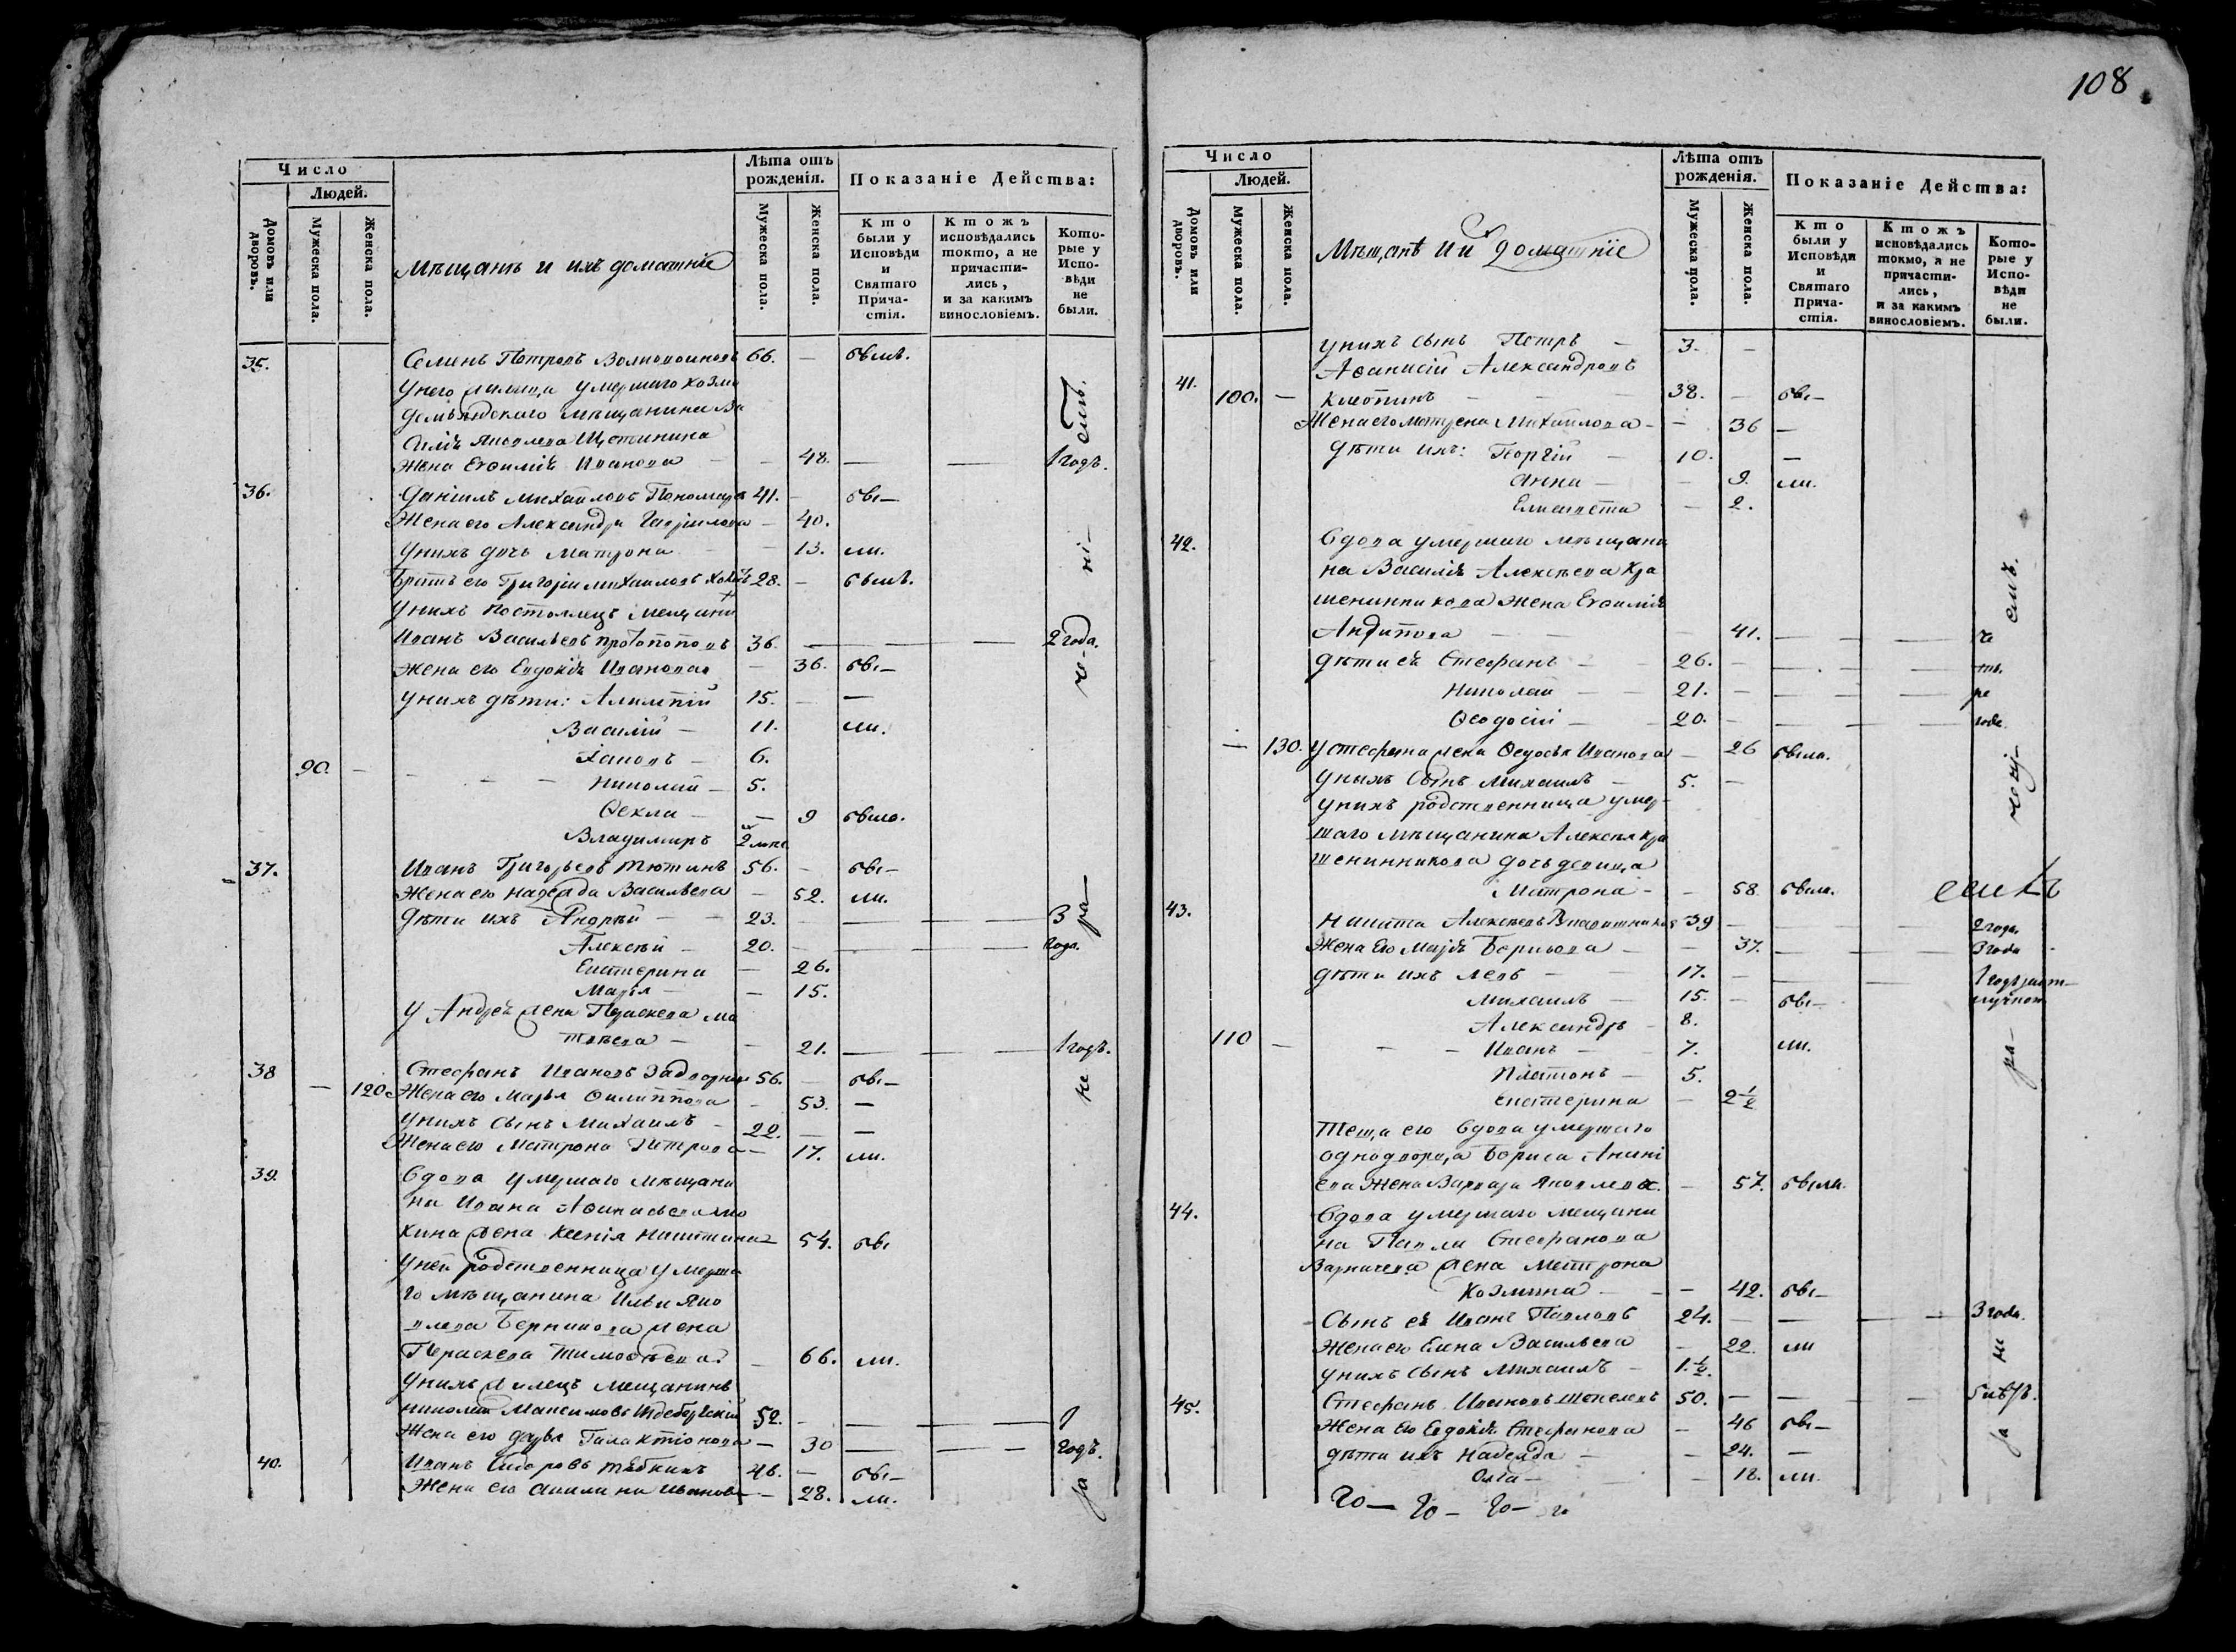 108
Число
Людей.
Домовъ или дворовъ.
Мужеска пола.
Женска пола.
Мѣщанѣ и ихъ домашніе
Лѣта отъ рожденія.
Мужеска пола.
Женска пола.
Показаніе Действа:
Кто были у Исповѣди и Святаго Причастія.
Ктожъ исповѣдались токто, а не причастились, и за какимъ винословіемъ.
Которые у Исповѣди не были.
35. Петровъ 66. — былъ.
У него умершаго Козмо
демьянского мѣщанина Ва
силія Яковлева Щетинина
жена Евфимія Иванова — — 48. — — 1 годъ.
36. Даніилъ Михайловъ 41. — бы—
Жена его Александра Гаврилова — 40.
У нихъ дочь Матрона — 13. ли.
Братъ его Григорій Михайловъ 28. — былъ.
У нихъ постоялецъ мещанинъ
Иванъ Васильевъ Протопоповъ 36. — — — 2 года.
Жена его Евдокія Иванова — 36. бы—
У нихъ дѣти: Алимпій 15. — —
Василій — 11. ли.
Іаковъ — 6.
90. — — — — Николай — 5.
Фекла — — 9 была.
Владимиръ 2
37. Иванъ Григорьевъ Тютинъ 56. — бы—
Жена его Надежда Васильева — 52. ли.
Дѣти ихъ Андрей — — 23. — — — — 3
Алексѣй — 20. — — — — года.
Екатерина — 26.
Марья — — 15.
У Андрея жена Параскева Ма
твѣева — — 21. — — — 1 годъ.
38 Стефанъ Ивановъ 56. — бы—
— 120 Жена его Марья Филиппова — 53. —
У нихъ сынъ Михаилъ — 22. — —
Жена его Матрона Петрова — 17. ли.
39. Вдова умершаго мѣщани
на Ивана Афанасьева
кина жена Ксенія Никитина — 54. бы
У ней родственница умерша
го мѣщанина Ильи Яко
влева Берникова жена
Параскева Тимофѣева — 66. ли.
У нихъ жилецъ мещанинъ
Николай Максимовъ 52. — — — 1
Жена его Дарья Галактіонова — 30 — — — годъ.
40. Иванъ 46. — бы—
Жена его Акилина Иванова — 28. ли.
Число
Людей.
Домовъ или дворовъ.
Мужеска пола.
Женска пола.
Мѣщанѣ и и домашніе
Лѣта отъ рожденія.
Мужеска пола.
Женска пола.
Показаніе Действа:
Кто были у Исповѣди и Святаго Причастія.
Ктожъ исповѣдались токмо, а не причастились, и за какимъ винословіемъ.
Которые у Исповѣди не были.
У нихъ сынъ Петръ — 3. —
41. Афанасій Александровъ
100. — — — 38. — бы—
Жена его Матрена Михайлова — — 36 —
Дѣти ихъ: Георгій — 10. —
Анна — — 9. ли.
Елисавета — 2.
42. Вдова умершаго мѣщани
на Василія Алексѣева Кра
шенинникова жена Евфимія
Антипова — — — 41. — —
Дѣти ея Стефанъ — — 26. — — — —
Николай — — 21. — — — —
Феодосій — — 20. — — — — года
— 130. У Стефана жена Федосья Иванова — 26 была.
У нихъ сынъ Михаилъ — 5. —
У нихъ родственница умер
шаго мѣщанина Алексѣя Кра
шенинникова дочь девица
Матрона — — 58. была.
43. Никита Алексѣевъ 39 — — — — 2 года
Жена его Марія Борисова — — 37. — — 3 года
Дѣти ихъ Левъ — — 17. — — — 1 годъ
Михаилъ — 15. — бы—
Александръ — 8.
110 — — — Иванъ — — 7. ли.
Платонъ — 5.
Екатерина — 2½
Теща его вдова умершаго
однодворца Бориса Анані
ева жена Варвара Яковлева. — 57. были.
44. Вдова умершаго мещани
на Павла Стефанова
жена Матрона
Козмина — — — 42. бы—
Сынъ ея Иванъ Павловъ 24. — — — — 3 года.
Жена его Елена Васильева — 22. ли
У нихъ сынъ Михаилъ — 1.½.
45. Стефанъ Ивановъ Шепелевъ 50. — — —
Жена его Евдокія Стефанова — 46 бы—
Дѣти ихъ Надежда — — 24. —
Ольга — — 18. ли.